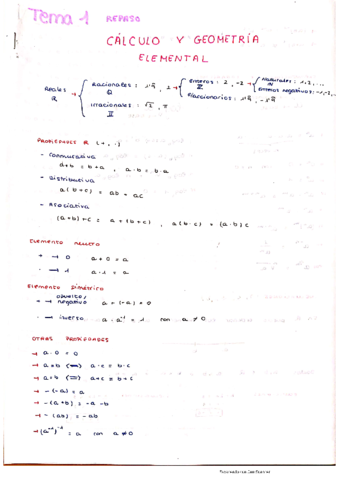 Tema 1 REPASO
CÁLCULO Y GEOMETRÍA
ELEMENTAL
Reales R → Racionales : Q Enteros : 2, -2 Z Naturales : 1, 2, ... N
Enteros negativos : -1, -2, ...
Fraccionarios
Irracionales : √2, π
II
PROPIEDADES R (+, ·)
- Conmutativa
a+b = b+a , a·b = b·a
- Distributiva
a(b+c) = ab + ac
- Asociativa
(a+b)+c = a+(b+c) , a(b·c) = (a·b)c
Elemento neutro
+ → 0 a+0 = a
· → 1 a·1 = a
Elemento Simétrico
+ → opuesto/negativo a+(-a) = 0
· → inverso a·a⁻¹ = 1 con a ≠ 0
OTRAS PROPIEDADES
→ a·0 = 0
→ -(-a) = a
→ -(a+b) = -a -b
→ -(ab) = -ab
→ (a⁻¹)⁻¹ = a con a≠0